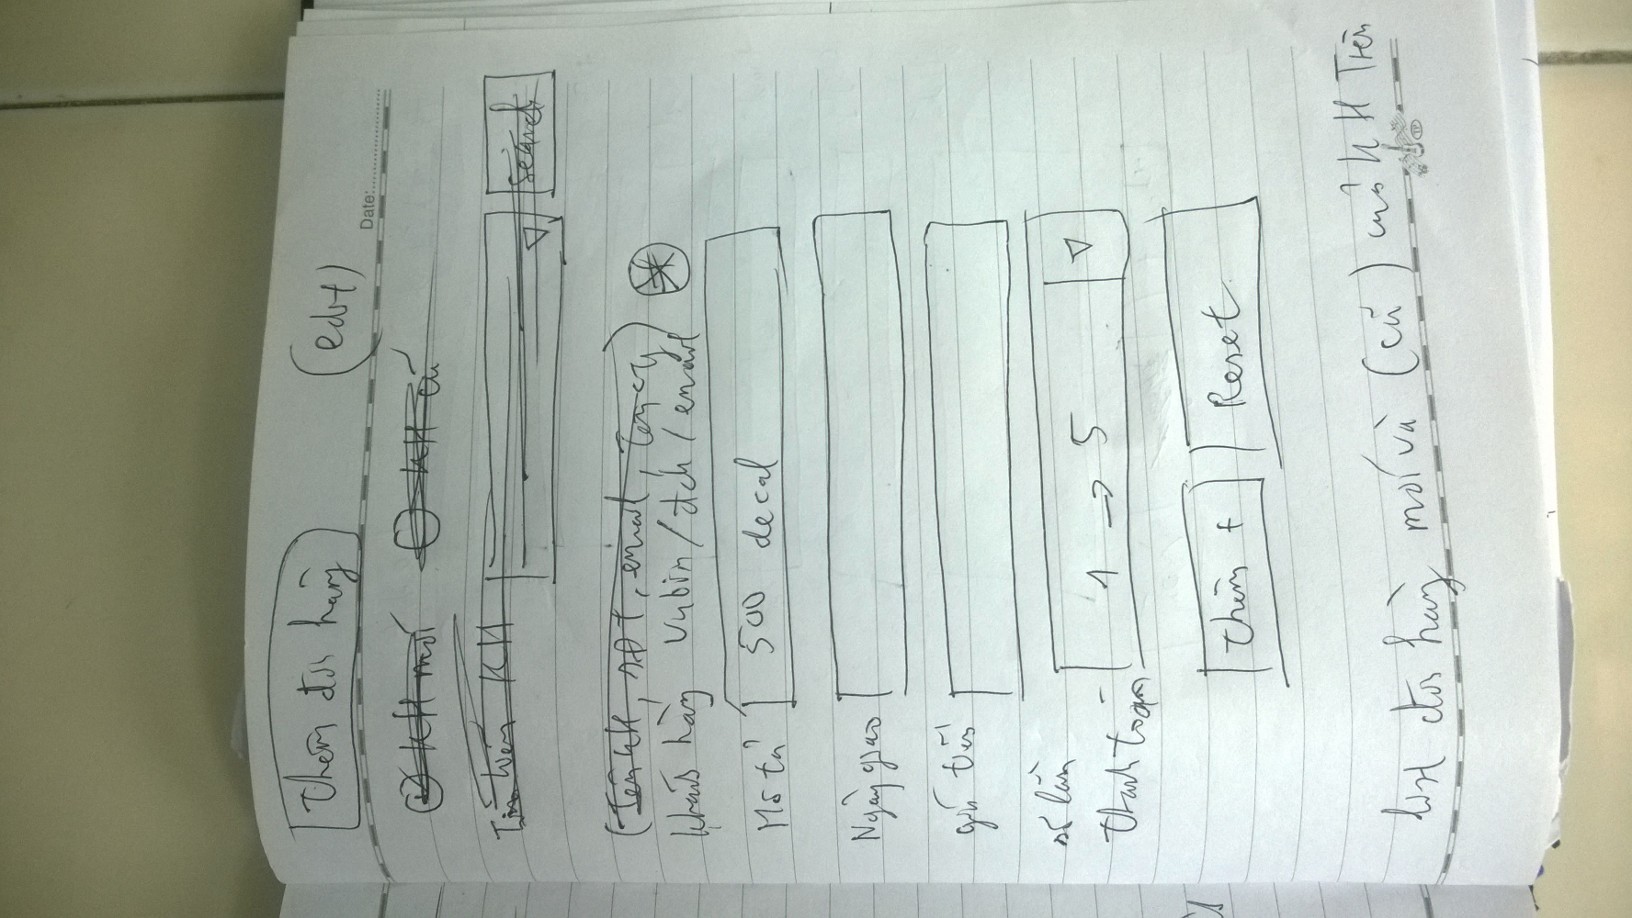 Date:
Thêm đơn hàng (edit)
KH mới KH cũ
Tìm kiếm KH Search
(Tên KH, SĐT, email, tên cty)
Khách hàng / đch / email
Mô tả 500 decal
Ngày giao
giá tiền
số lần 1 → 5
thanh toán
Thêm + Reset
list đơn hàng mới và (cũ) của KH Tiên